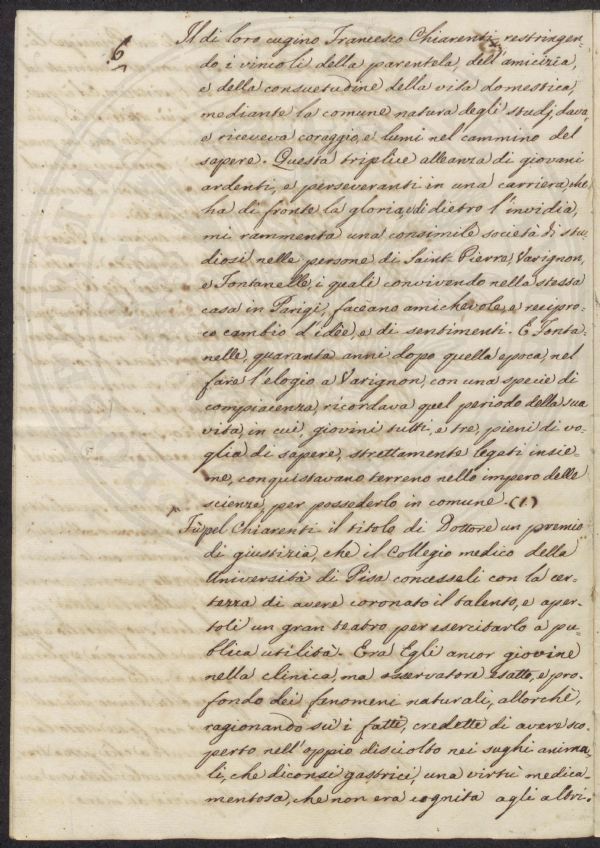 6
Il di loro cugino Francesco Chiarenti, restringen=
do i vincoli della parentela, dell'amicizia,
e della consuetudine della vita domestica,
mediante la comune natura degli studj, dava,
e riceveva coraggio, e lumi nel cammino del
sapere. Questa triplice alleanza di giovani
ardenti, e perseveranti in una carriera, che
ha di fronte la gloria, e di dietro l'invidia,
mi rammenta una consimile società di stu=
diosi nelle persone di Saint-Pierre, Varignon,
e Fontanelle, i quali convivendo nella stessa
casa in Parigi, faceano amichevole, e recipro=
co cambio d'idee, e di sentimenti. E Fonta=
nelle, quaranta anni dopo quella epoca, nel
fare l'elogio a Varignon, con una specie di
compiacenza, ricordava quel periodo della sua
vita, in cui, giovini tutti, e tre, pieni di vo=
glia di sapere, strettamente legati insie=
me, conquistavano terreno nello impero delle
scienze, per possederlo in comune. (1.)
Fù pel Chiarenti il titolo di Dottore un premio
di giustizia, che il Collegio medico della
Università di Pisa concesseli con la cer=
tezza di avere coronato il talento, e aper=
toli un gran teatro per esercitarlo a pu=
blica utilità. Era Egli ancor giovine
nella clinica, ma osservatore esatto, e pro=
fondo dei fenomeni naturali, allorchè,
ragionando sù i fatti, credette di avere sco=
perto nell'oppio disciolto nei sughi anima=
li, che diconsi gastrici, una virtù medica=
mentosa, che non era cognita agli altri.